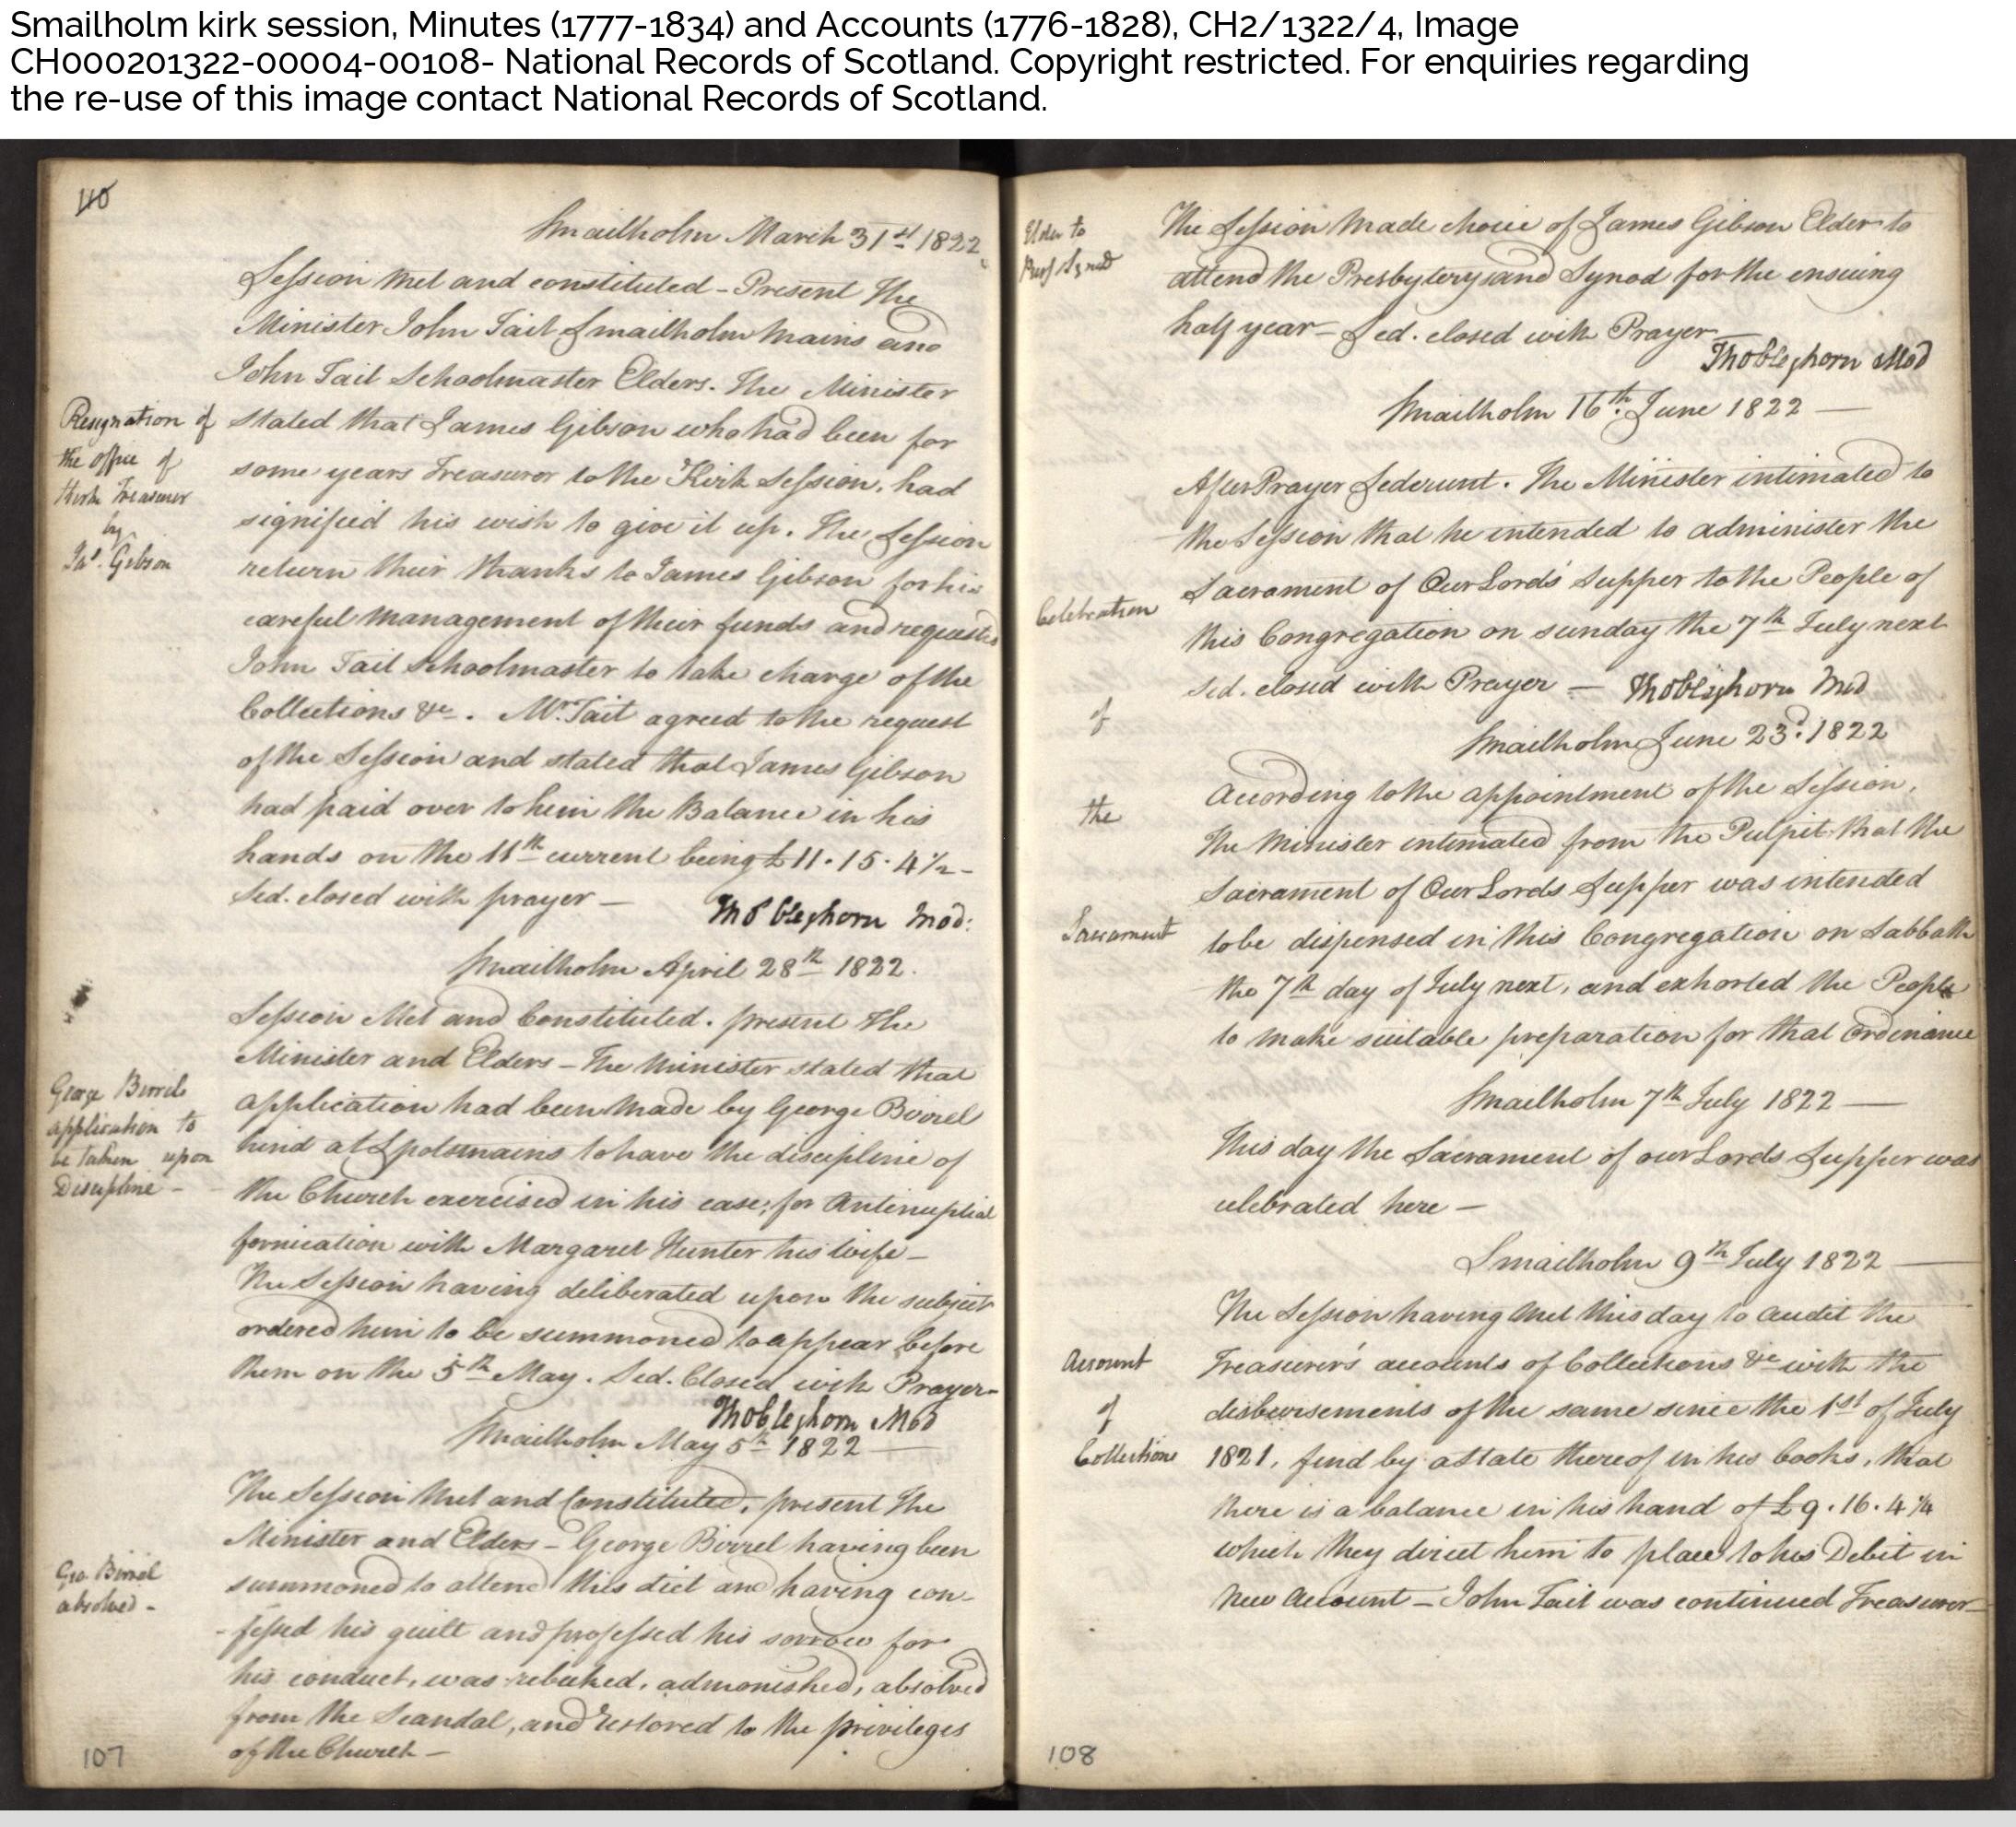 Smailholm kirk session, Minutes (1777-1834) and Accounts (1776-1828), CH2/1322/4, Image
CH000201322-00004-00108- National Records of Scotland. Copyright restricted. For enquiries regarding
the re-use of this image contact National Records of Scotland.
110
Smailholm March 31st 1822
Session met and constituted - Present The
Minister John Tait Smailholm Mains and
John Tait Schoolmaster Elders. The Minister
Resignation of
the office of
Kirk Treasurer
by
Jas. Gibson
stated that James Gibson who had been for
some years Treasuror to the Kirk Session, had
signified his wish to give it up. The Session
return their thanks to James Gibson for his
careful management of their funds and requested
John Tait Schoolmaster to take charge of the
Collections &c. Mr. Tait agreed to the request
of the Session and stated that James Gibson
had paid over to him the Balance in his
hands on the 11th current being £11.15.4½ -
Sed. closed with prayer - Tho Cleghorn Mod:
Smailholm April 28th 1822.
Session Met and Constituted. present the
Minister and Elders - The Minister stated that
George Birrels
application to
be taken upon
Discipline -
application had been made by George Birrel
hind at Spotsmains to have the discipline of
the Church exercised in his case, for Antinuptial
fornication with Margaret Hunter his wife -
The Session having deliberated upon the subject
ordered him to be summoned to appear before
them on the 5th May. Sed. Closed with Prayer -
Tho Cleghorn Mod
Smailholm May 5th 1822 -
The Session Met and Constituted, present the
Minister and Elders - George Birrel having been
Geo. Birrel
absolved -
summoned to attend this diet and having con-
- fessed his guilt and professed his sorrow for
his conduct, was rebuked, admonished, absolved
from the Scandal, and restored to the privileges
of the Church -
107
Elder to
Presy Synod
The Session made choice of James Gibson Elder to
attend the Presbytery and Synod for the ensuing
half year - Sed. closed with Prayer -
Tho Cleghorn Mod
Smailholm 16th. June 1822 -
After Prayer Sederunt. The Minister intimated to
the Session that he intended to administer the
Sacrament of Our Lord's Supper to the People of
Celebration
of
the
Sacrament
this Congregation on sunday the 7th July next
Sed. closed with Prayer - Tho Cleghorn Mod
Smailholm June 23d. 1822
According to the appointment of the Session,
The Minister intimated from the Pulpit that the
Sacrament of Our Lords Supper was intended
to be dispensed in this Congregation on Sabbath
the 7th day of July next, and exhorted the People
to make suitable preparation for that Ordinance
Smailholm 7th July 1822 -
This day the Sacrament of our Lords Supper was
celebrated here -
Smailholm 9th July 1822 -
The Session having met this day to audit the
Account
of
Collections
Treasurer's accounts of Collections &c with the
disbursements of the same since the 1st of July
1821, find by a State thereof in his books, that
there is a balance in his hand of £9.16.4¼
which they direct him to place to his Debit in
New Account - John Tait was continued Treasurer -
108